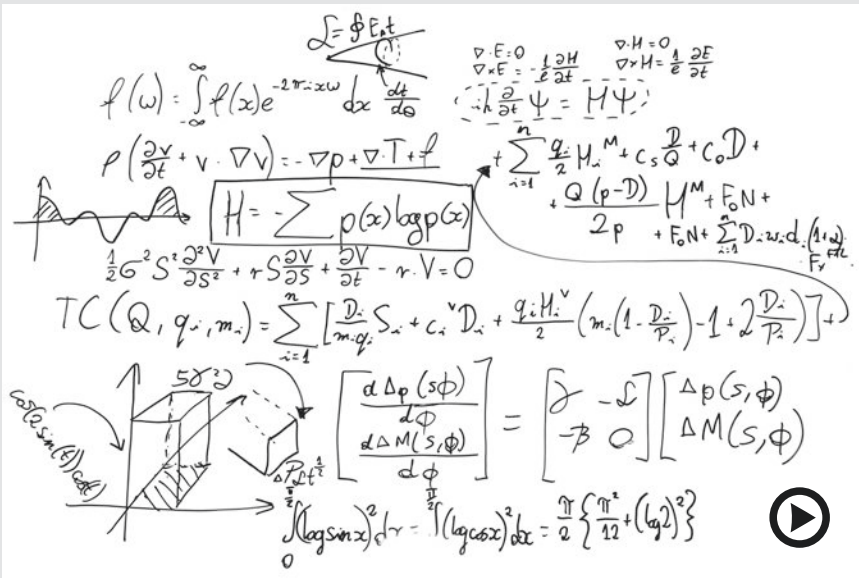 ℒ = ∮ E₁t
∇·E=0 ∇·H=0
∇×E = -1/c ∂H/∂t ∇×H = 1/c ∂E/∂t
f(ω) = ∫_{-∞}^{∞} f(x)e^{-2πixω} dx dt/dθ
ih ∂/∂t Ψ = HΨ
ρ(∂v/∂t + v·∇v) = -∇p + ∇·T + f
+ ∑_{i=1}^{n} q_i/2 H_i^M + c_s D/Q + C_o D +
+ Q(p-D)/2p H^M + F_o N +
+ F_o N + ∑_{i=1}^{n} D_i w_i d_i (1+α)
H = -∑ p(x) log p(x)
1/2 σ² S² ∂²V/∂S² + rS ∂V/∂S + ∂V/∂t - r·V = 0
TC(Q, q_i, m_i) = ∑_{i=1}^{n} [D_i/(m_i q_i) S_i + c_i^v D_i + q_i H_i^v/2 (m_i(1 - D_i/P_i) - 1 + 2 D_i/P_i)] +
5γ²
cos(2sin(t))cos(t)
[d Δp(s,ϕ)/dϕ ; d ΔM(s,ϕ)/dϕ] = [γ -ℒ ; -β 0] [Δp(s,ϕ) ; ΔM(s,ϕ)]
∫_0^{π/2} (log sin x)² dx = ∫^{π/2} (log cos x)² dx = π/2 {π²/12 + (log 2)²}